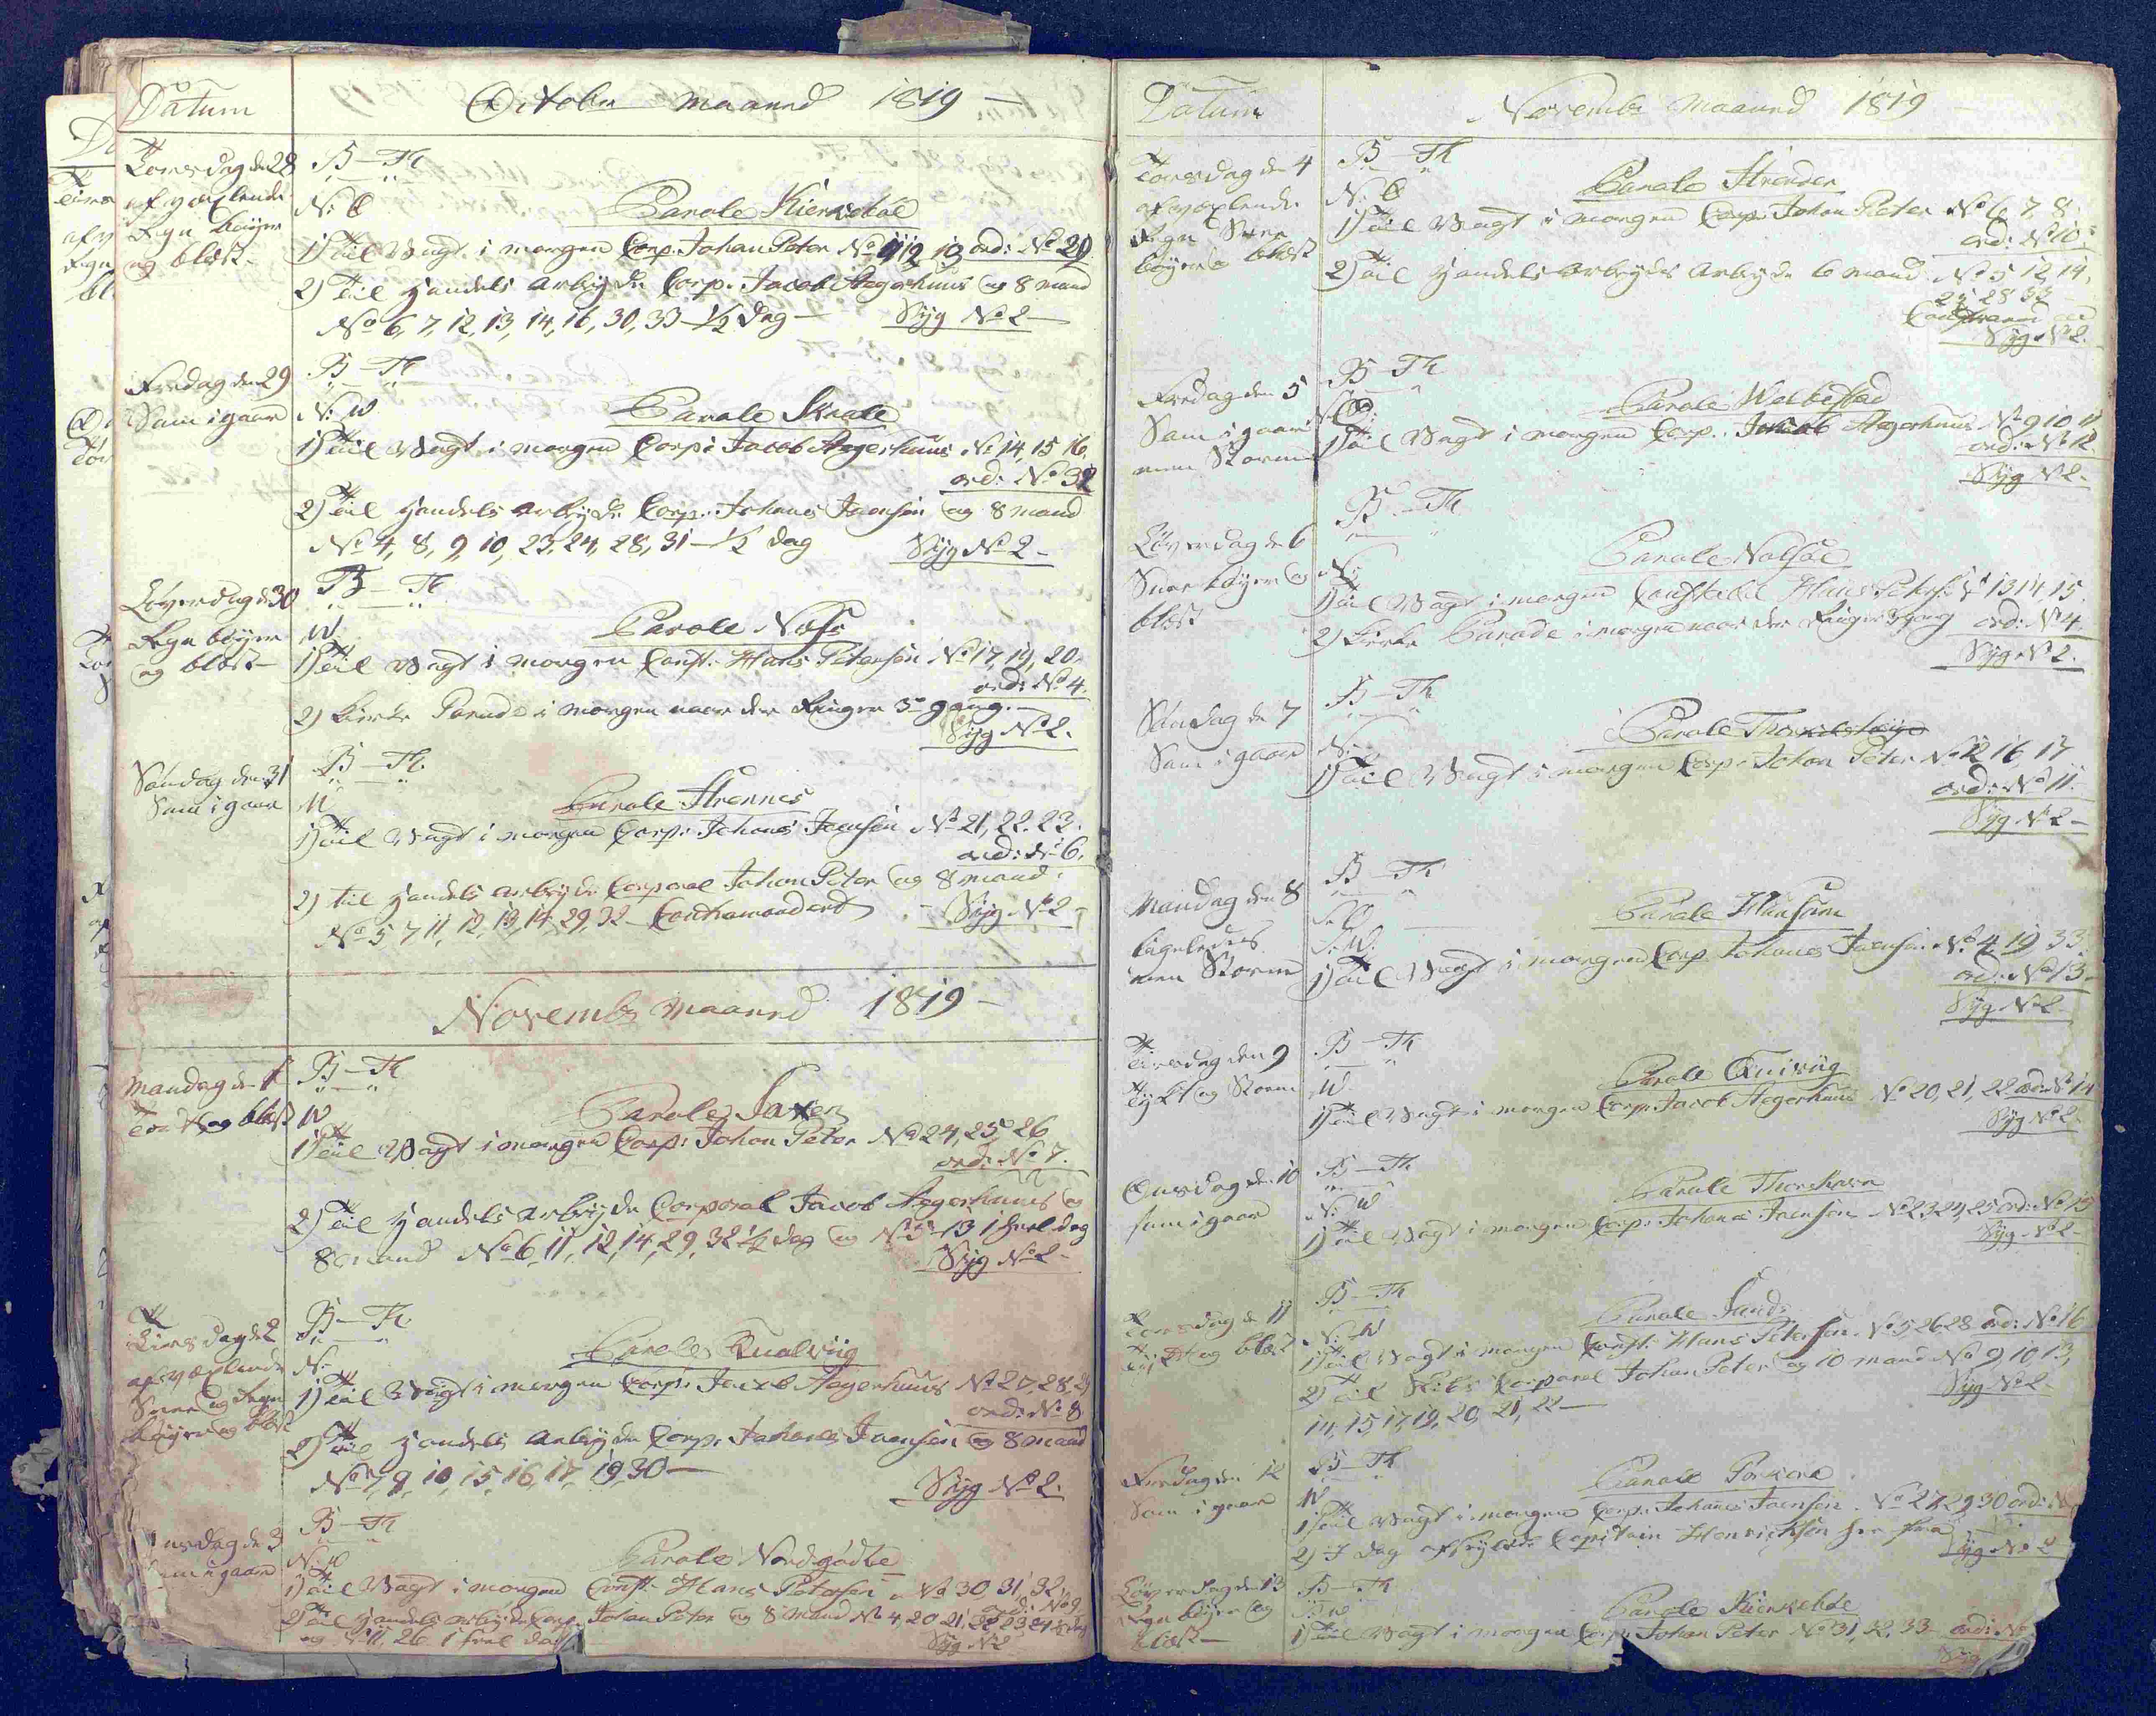 Datum
October Maaned 1819 —
Torsdag den 28
afvexlende
Regn bøyer
og blæst —
B — Th
N: O
Parole Kirkebøe
1) Til Vagt i morgen Corp: Johan Peter No 11 12 13 ord: No 29
2) Til Handels Arbeyde Corp: Jacob Aagerhuus og 8 mand
No 6, 7, 12, 13, 14, 16, 30, 33 — 1/2 dag —
Syg No 2 —
Fredag den 29
Som i gaar
B — Th
N: W
Parole Skaale
1) Til Vagt i morgen Corp: Jacob Aagerhuus No 14, 15 16.
ord: No 32
2) Til Handels Arbeyde Corp: Johanes Joensen og 8 mand
No 4, 8, 9, 10, 23, 24, 28, 31 — 1/2 dag
Syg No 2 —
Løverdag d 30
Regn bøyer
og blæst —
B — Th
W
Parole Næss
1) Til Vagt i morgen Const: Hans Petersen No 17, 19, 20,
ord: No 4.
2) Kirke Parade i morgen naar der Ringer 3de gang. —
Syg No 2.
Søndag den 31
Som i gaar
B — Th
W
Parole Strennes
1) Til Vagt i morgen Corp: Johanes Joensen No 21, 22. 23.
ord: No 6.
2) til Handels arbeyde Corporal Johan Peter og 8 mand:
No 5, 7 11, 12, 13, 14, 29, 32 — Contramandert
Syg No 2 —
November Maaned 1819 —
Mandag den 1
og blæst
B — Th
W
Parole Saxen
1) Til Vagt i morgen Corp: Johan Peter No 24, 25, 26
ord: No 7.
2) Til Handels Arbeyde Corporal Jacob Aagerhuus og
8 mand No 6, 11, 12, 14, 29, 32 1/2 dag og No 5 — 13 1 heel dag
Syg No 2 —
Tirsdag d 2
afvexlende
Snee og Regn
bøyer og blæst
B — Th
N:
Parole Qualviig
1) Til Vagt i morgen Corp: Jacob Aagerhuus No 27, 28, 29
ord: No 8
2) Til Handels Arbeyde Corp: Johanes Joensen og 8 mand
No 7, 9, 10, 15, 16, 17, 19, 30 —
Syg No 2.
Onsdag de 3
Som i gaar
B — Th
N: W
Parole Nordgødte
1) Til Vagt i morgen Const: Hans Petersen No 30 31, 32,
ord: No 9
2) Til Handels Arbeyde Corp: Johan Peter og 8 mand No 4, 20 21, 22 23, 24 1/2 dag
og No 11, 26 1 heel dag
Syg No 2
Datum
November Maaned 1819
Torsdag den 4
afvexlende
Regn Snee
bøyer og blæst
B — Th
N: O
Parole Strender
1) Til Vagt i morgen Corp: Johan Peter No 6, 7, 8.
ord: No 10.
2) Til Handels Arbeyds Arbeyde 6 mand No 5 12, 14,
27 28 33
Syg No 2.
Fredag den 5
Som i gaar
men Storm
B — Th
N: O:
Parole Welbestad
1) Til Vagt i morgen Corp: Jacob Aagerhuus No 9 10 11
ord: No 12.
Syg No 2.
Løverdag de 6
Snee bøyer og
blæst
B — Th
N:
Parole Nolsøe
1) Til Vagt i morgen Constabel Hans Peters: No 13 14, 15.
2) Kirke Parade i morgen naar der Ringer 3 gang
ord: No 4
Syg No 2.
Søndag de 7
Som i gaar
B — Th
N:
Parole
1) Til Vagt i morgen Corp: Johan Peter No 12 16, 17
ord: No 11.
Syg No 2 —
Mandag den 8
ligeledes
men Storm
B — Th
S: O.
S: W.
Parole Husum
1) Til Vagt i morgen Corp: Johanes Joensen No 4, 19 33.
ord: No 13 —
Syg No 2
Tirsdag den 9
Tykt og Storm
B — Th
W.
Parole Quiviig
1) Til Vagt i morgen Corp: Jacob Aagerhuus No 20, 21, 22 ord: No 14
Syg No 2
Onsdag den 10
som i gaar
B — Th
N: W
Parole Thorshavn
1) Til Vagt i morgen Corp: Johanes Joensen No 23, 24, 25 ord: No 15
Syg No 2 —
Torsdag de 11
Tykt og blæst
B — Th
N: W
Parole Sand:
1) Til Vagt i morgen Const: Hans Petersen. No 5 26 28 ord: No 16
2) Til Skibs Corporal Johan Peter og 10 mand No 9, 10, 13,
14, 15, 17, 19, 20, 21, 22 —
Syg No 2
Fredag den 12
Som i gaar
B — Th
W
Parole Porkere
1) Til Vagt i morgen Corp: Johanes Joensen. No 27, 29 30 ord:
2) I dag afseylede Capitain Henrichsen her fra
Syg No 2
Løverdag den 13
Regn bøyer og
blæst —
B — Th
W
Parole Kirkebøe
1) Til Vagt i morgen Corp: Johan Peter No 31, 32, 33 — ord: No
Syg